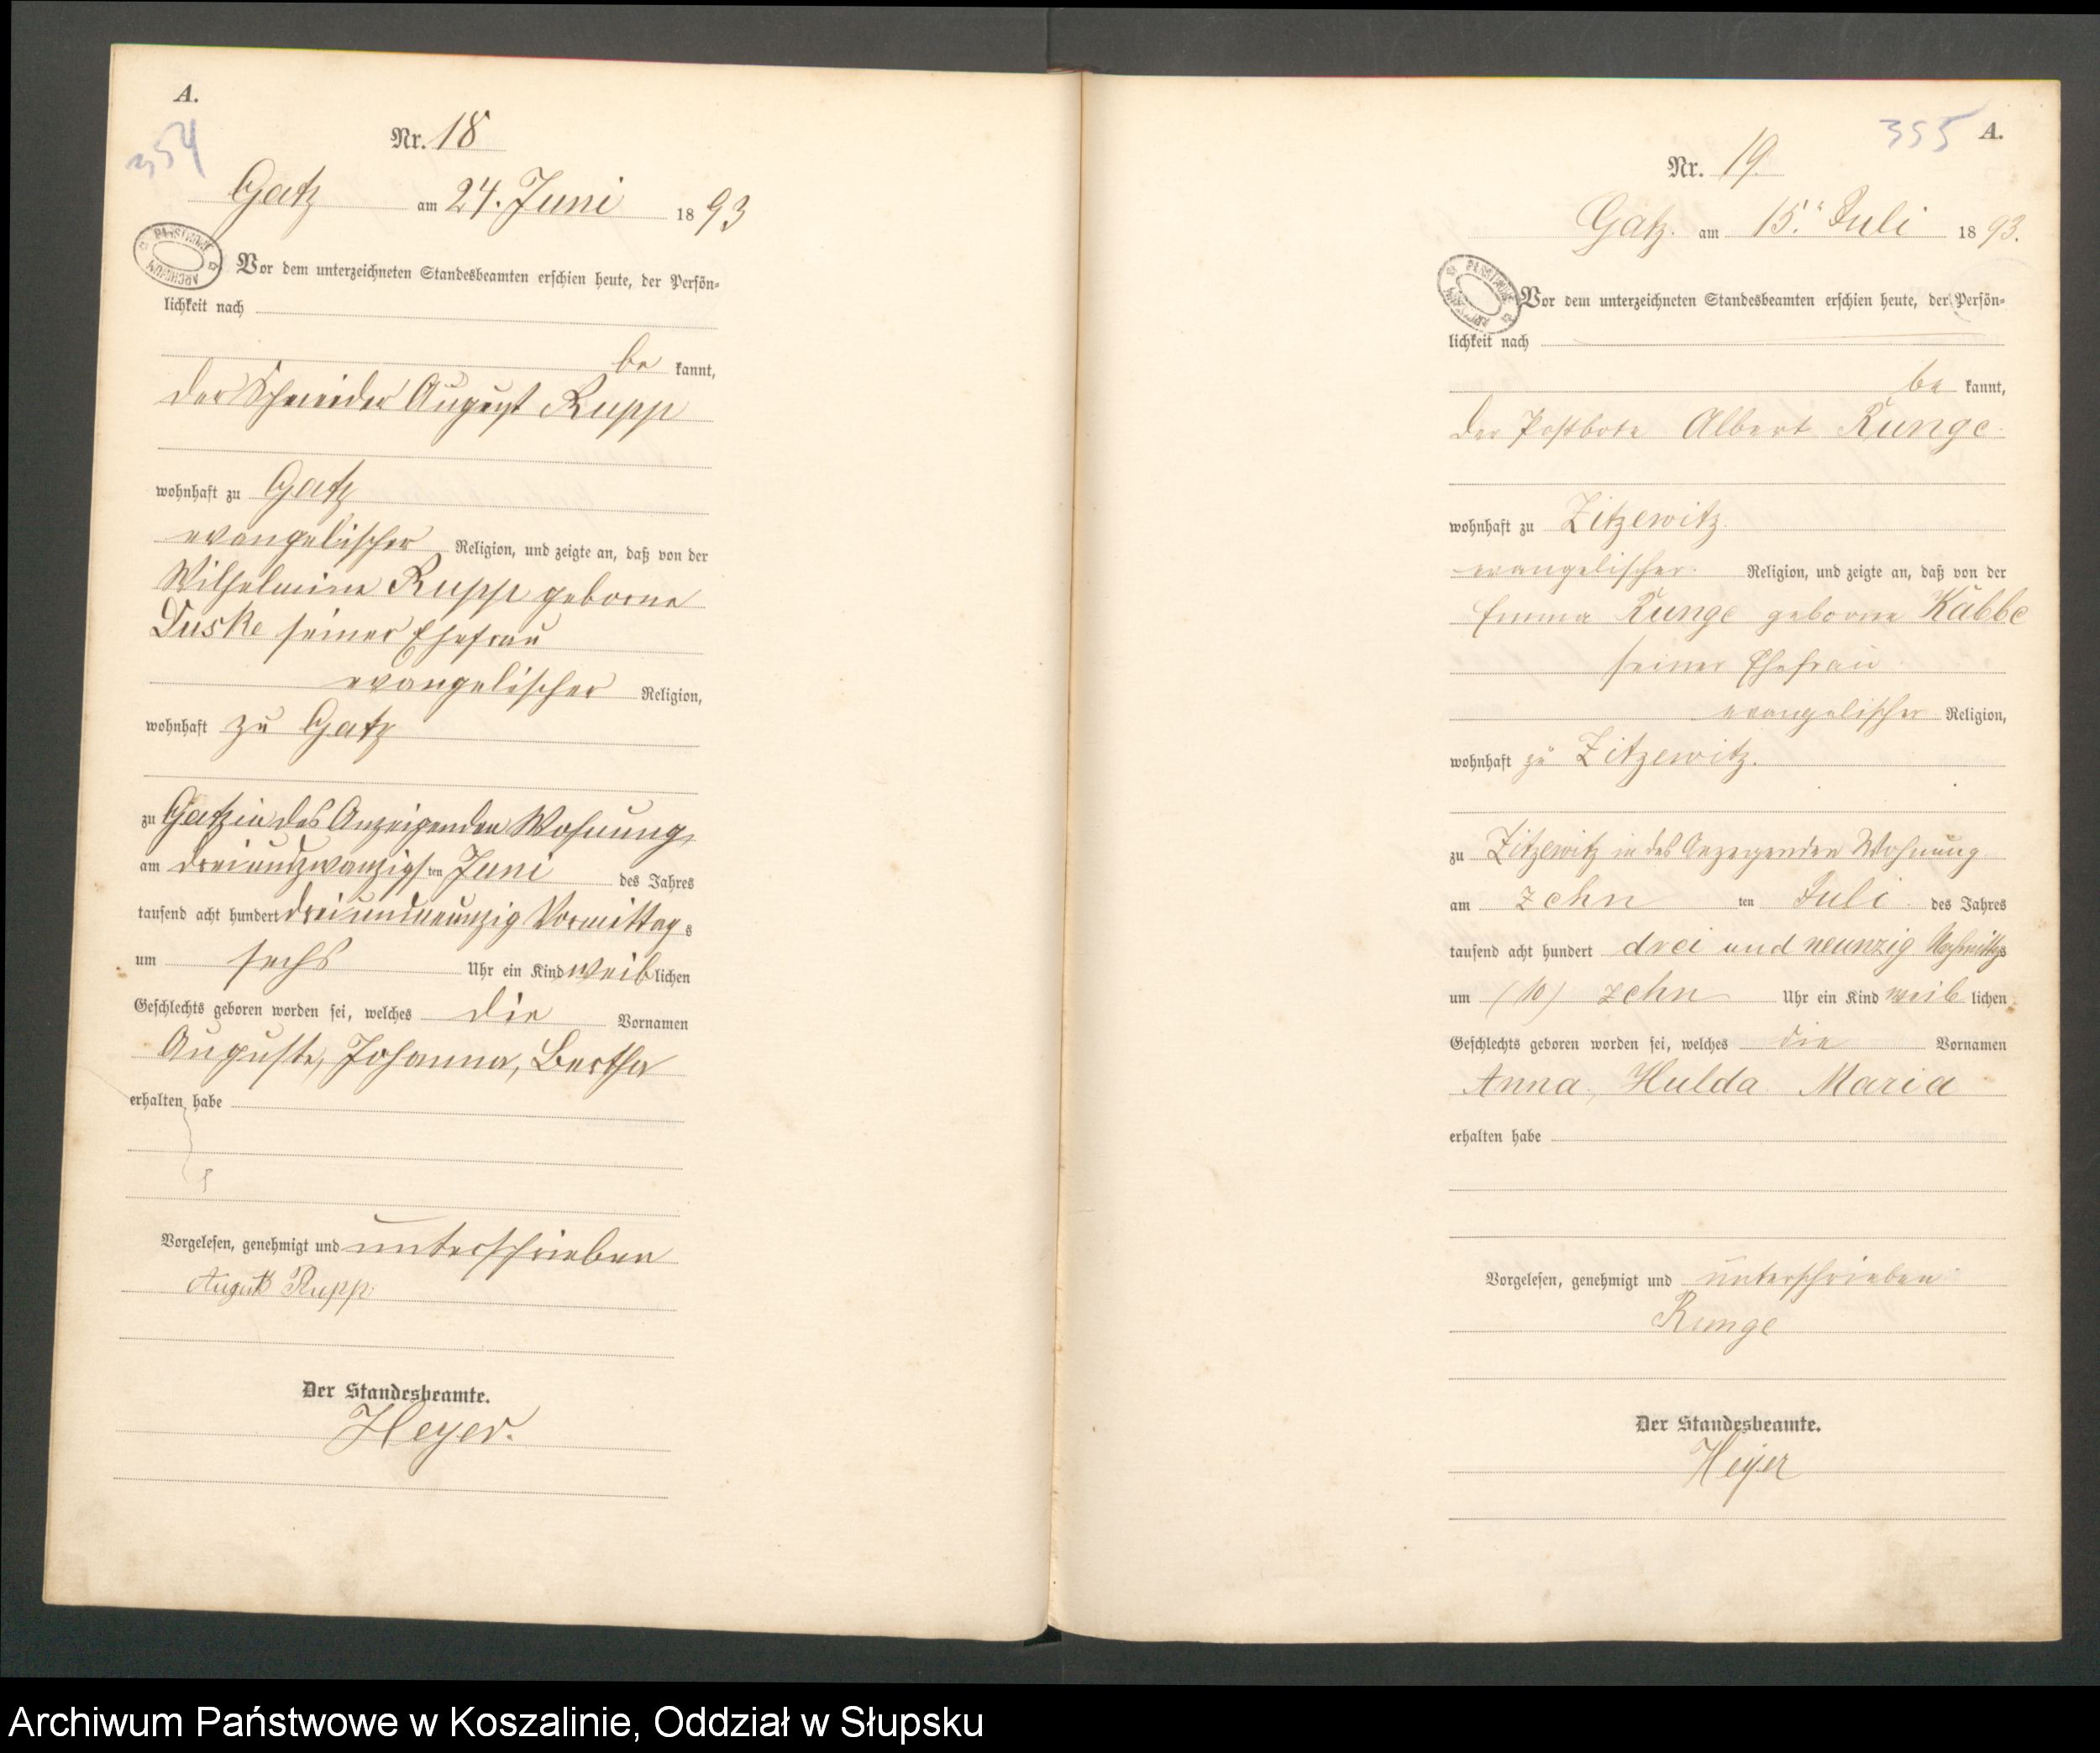 A.
354
Nr. 18
Gatz am 24. Juni 1893
PAŃSTWOWE ARCHIWUM
Vor dem unterzeichneten Standesbeamten erschien heute, der Persön-
lichkeit nach
be kannt,
der Schneider August Rupp
wohnhaft zu Gatz
evangelischer Religion, und zeigte an, daß von der
Wilhelmine Rupp geborne
Duske seiner Ehefrau
evangelischer Religion,
wohnhaft zu Gatz
zu Gatz in des Anzeigenden Wohnung
am dreiundzwanzigsten Juni des Jahres
tausend acht hundert dreiundneunzig Vormittags
um sechs Uhr ein Kind weiblichen
Geschlechts geboren worden sei, welches die Vornamen
Auguste, Johanna, Bertha
erhalten habe
Vorgelesen, genehmigt und unterschrieben
August Rupp
Der Standesbeamte.
Heyer.
355 A.
Nr. 19.
Gatz. am 15. Juli 1893.
PAŃSTWOWE ARCHIWUM
Vor dem unterzeichneten Standesbeamten erschien heute, der Persön-
lichkeit nach
be kannt,
der Postbote Albert Runge
wohnhaft zu Zitzewitz.
evangelischer Religion, und zeigte an, daß von der
Emma Runge geborne Kubbe
seiner Ehefrau
evangelischer Religion,
wohnhaft zu Zitzewitz.
zu Zitzewitz in des Anzeigenden Wohnung
am zehn ten Juli des Jahres
tausend acht hundert drei und neunzig Nachmittags
um (10) zehn Uhr ein Kind weib lichen
Geschlechts geboren worden sei, welches die Vornamen
Anna, Hulda Maria
erhalten habe
Vorgelesen, genehmigt und unterschrieben
Runge
Der Standesbeamte.
Heyer
Archiwum Państwowe w Koszalinie, Oddział w Słupsku